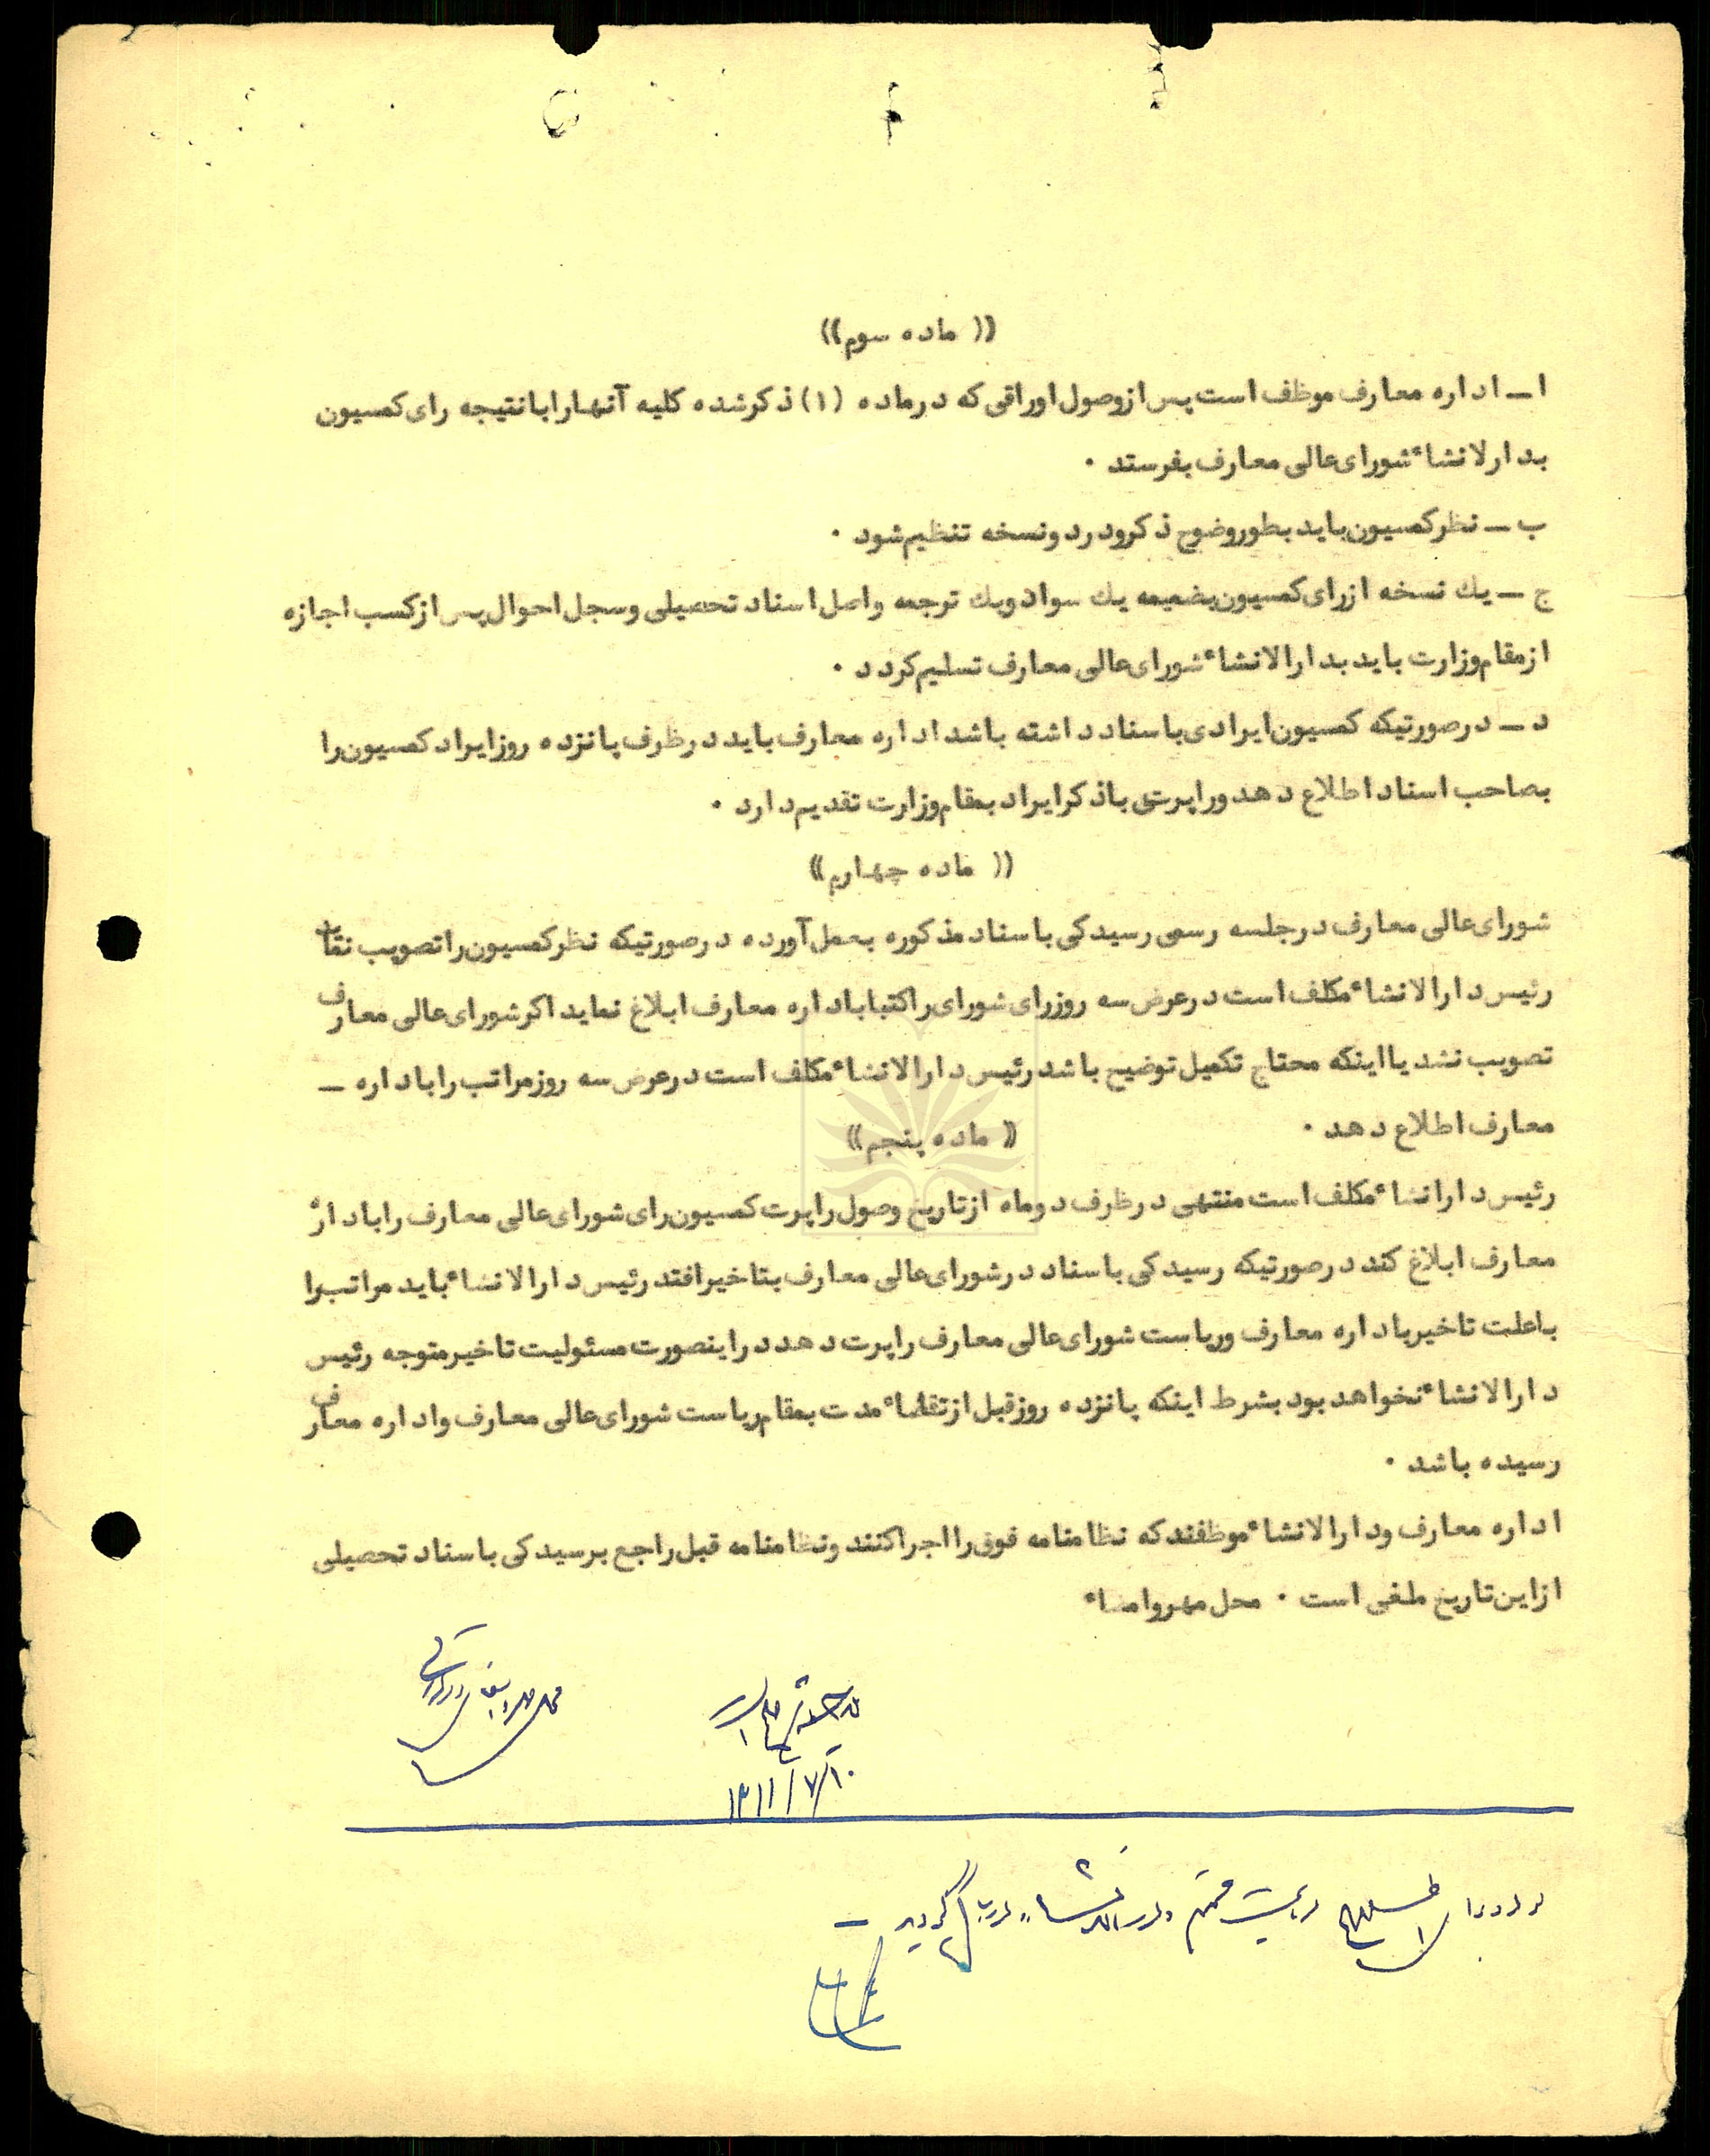 (( ماده سوم))
ا ـ اداره معارف موظف است پس از وصول اوراقی که در ماده (۱) ذکر شده کلیه آنها را با نتیجه رای کمسیون
بدارلانشاء شورای عالی معارف بفرستد ۰
ب ـ نظر کمسیون باید بطور وضوح ذکر و در دو نسخه تنظیم شود ۰
ج ـ یك نسخه از رای کمسیون بضمیمه یك سواد و یك ترجمه و اصل اسناد تحصیلی و سجل احوال پس از کسب اجازه
از مقام وزارت باید بدارالانشاء شورای عالی معارف تسلیم کردد ۰
د ـ در صورتیکه کمسیون ایرادی باسناد داشته باشد اداره معارف باید در ظرف پانزده روز ایراد کمسیون را
بصاحب اسناد اطلاع دهد و راپرتی با ذکر ایراد بمقام وزارت تقدیم دارد ۰
(( ماده چهارم))
شورای عالی معارف در جلسه رسمی رسیدکی باسناد مذکوره بعمل آورده در صورتیکه نظر کمسیون را تصویب
رئیس دارالانشاء مکلف است در عرض سه روز رای شورای را کتبا باداره معارف ابلاغ نماید اکر شورای عالی معارف
تصویب نشد یا اینکه محتاج تکمیل توضیح باشد رئیس دارالانشاء مکلف است در عرض سه روز مراتب را باداره ـ
معارف اطلاع دهد ۰
(( ماده پنجم))
رئیس دارانشاء مکلف است منتهی در ظرف دو ماه از تاریخ وصول راپرت کمسیون رای شورای عالی معارف را باداره
معارف ابلاغ کند در صورتیکه رسیدکی باسناد در شورای عالی معارف بتاخیر افتد رئیس دارالانشاء باید مراتب را
با علت تاخیر باداره معارف و ریاست شورای عالی معارف راپرت دهد در اینصورت مسئولیت تاخیر متوجه رئیس
دارالانشاء نخواهد بود بشرط اینکه پانزده روز قبل از تقاضاء مدت بمقام ریاست شورای عالی معارف و اداره معارف
رسیده باشد ۰
اداره معارف و دارالانشاء موظفند که نظامنامه فوق را اجرا کنند و نظامنامه قبل راجع برسیدکی باسناد تحصیلی
از این تاریخ ملغی است ۰ محل مهر و امضاء
۱۳۱۱/۷/۱۰